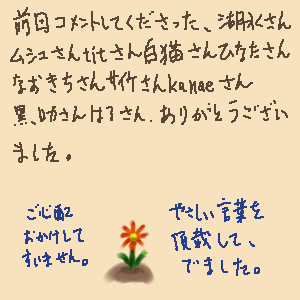 前回コメントしてくださった、湖水さん
ムシュさんtitさん白猫さんひなたさん
なおきちさんサイケさんkanaeさん
黒、助さんはるさん、ありがとうござい
ました。
ご心配
おかけして
すいません。
やさしい言葉を
頂戴して、
でました。